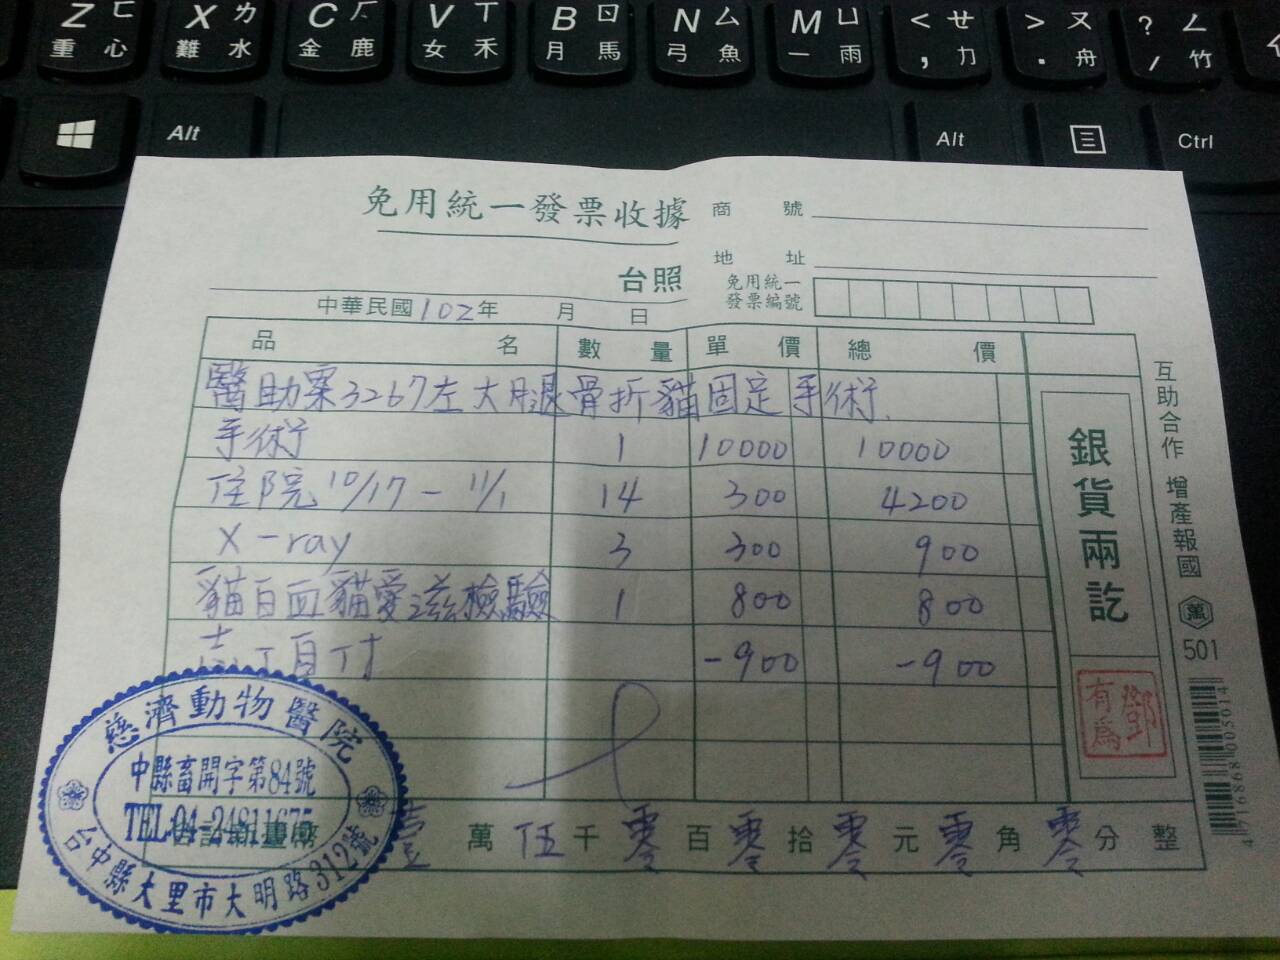 Z ㄈ 重 心
X ㄌ 難 水
C ㄏ 金 鹿
V ㄒ 女 禾
B ㄖ 月 馬
N ㄙ 弓 魚
M ㄩ 一 雨
< ㄝ , 力
> ㄡ . 舟
? ㄥ / 竹
Alt
Alt
Ctrl
免用統一發票收據
商號
地址
台照
免用統一
發票編號
中華民國102年 月 日
品名 數量 單價 總價
醫助案3267左大腿骨折貓固定手術
手術 1 10000 10000
住院 10/17 - 11/1 14 300 4200
X-ray 3 300 900
貓白血貓愛滋檢驗 1 800 800
志工自付 -900 -900
壹萬伍千零百零拾零元零角零分整
銀貨兩訖
鄧有為
互助合作 增產報國
萬
501
4 716868 005014
慈濟動物醫院
中縣畜開字第84號
TEL:04-24811675
台中縣大里市大明路312號